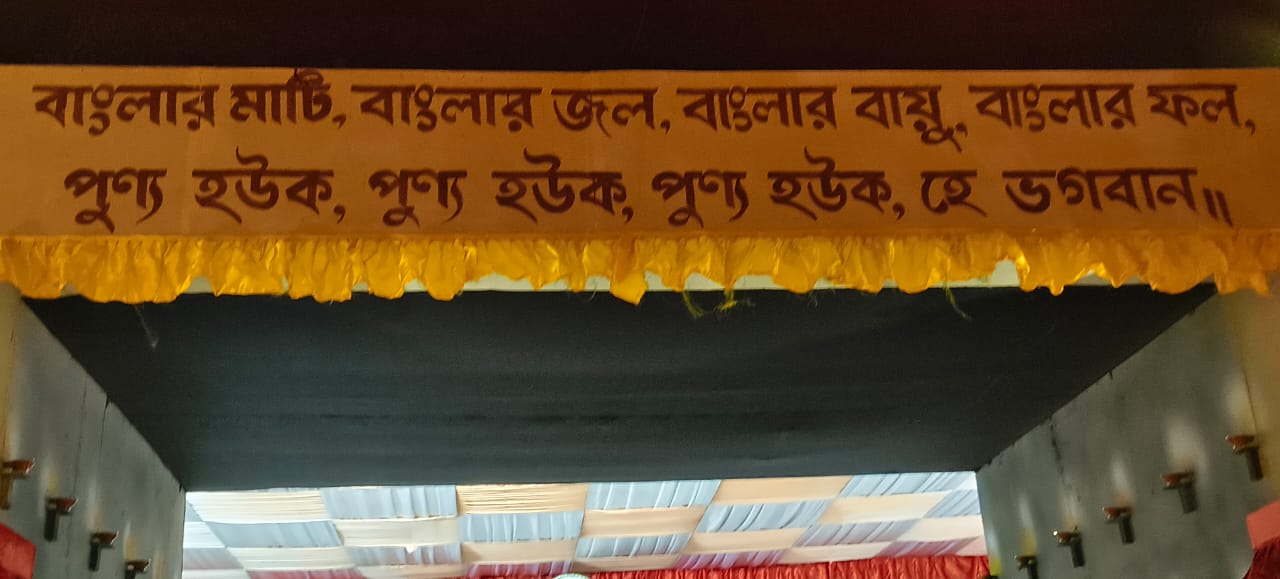 বাংলার মাটি, বাংলার জল, বাংলার বায়ু, বাংলার ফল,
পুণ্য হউক, পুণ্য হউক, পুণ্য হউক, হে ভগবান॥